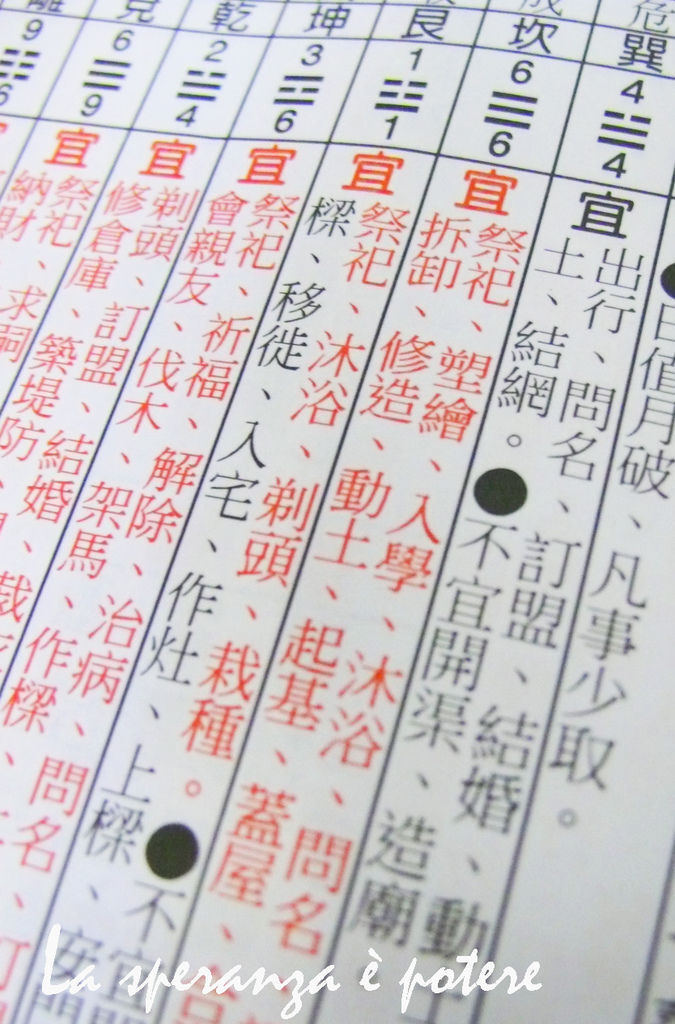 巽
4
4
●日值月破、凡事少取。
宜 出行、問名、訂盟、結婚、動
土、結網。●不宜開渠、造廟
坎
6
6
宜 祭祀、塑繪、入學、沐浴、問名
拆卸、修造、動土、起基、蓋屋、
艮
1
1
宜 祭祀、沐浴、剃頭、栽種。●不宜
樑、移徙、入宅、作灶、上樑、安
坤
3
6
宜 祭祀、祈福、解除、治病、問名、訂
會親友、伐木、架馬、作樑、
乾
2
4
宜 剃頭、訂盟、結婚、
修倉庫、築堤防、
兌
6
9
宜 祭祀、求嗣
納財、
離
9
6
La speranza è potere